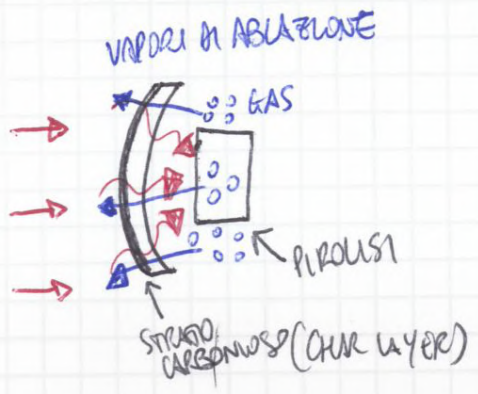 VAPORI DI ABLAZIONE
GAS
PIROLISI
STRATO
CARBONIOSO (CHAR LAYER)